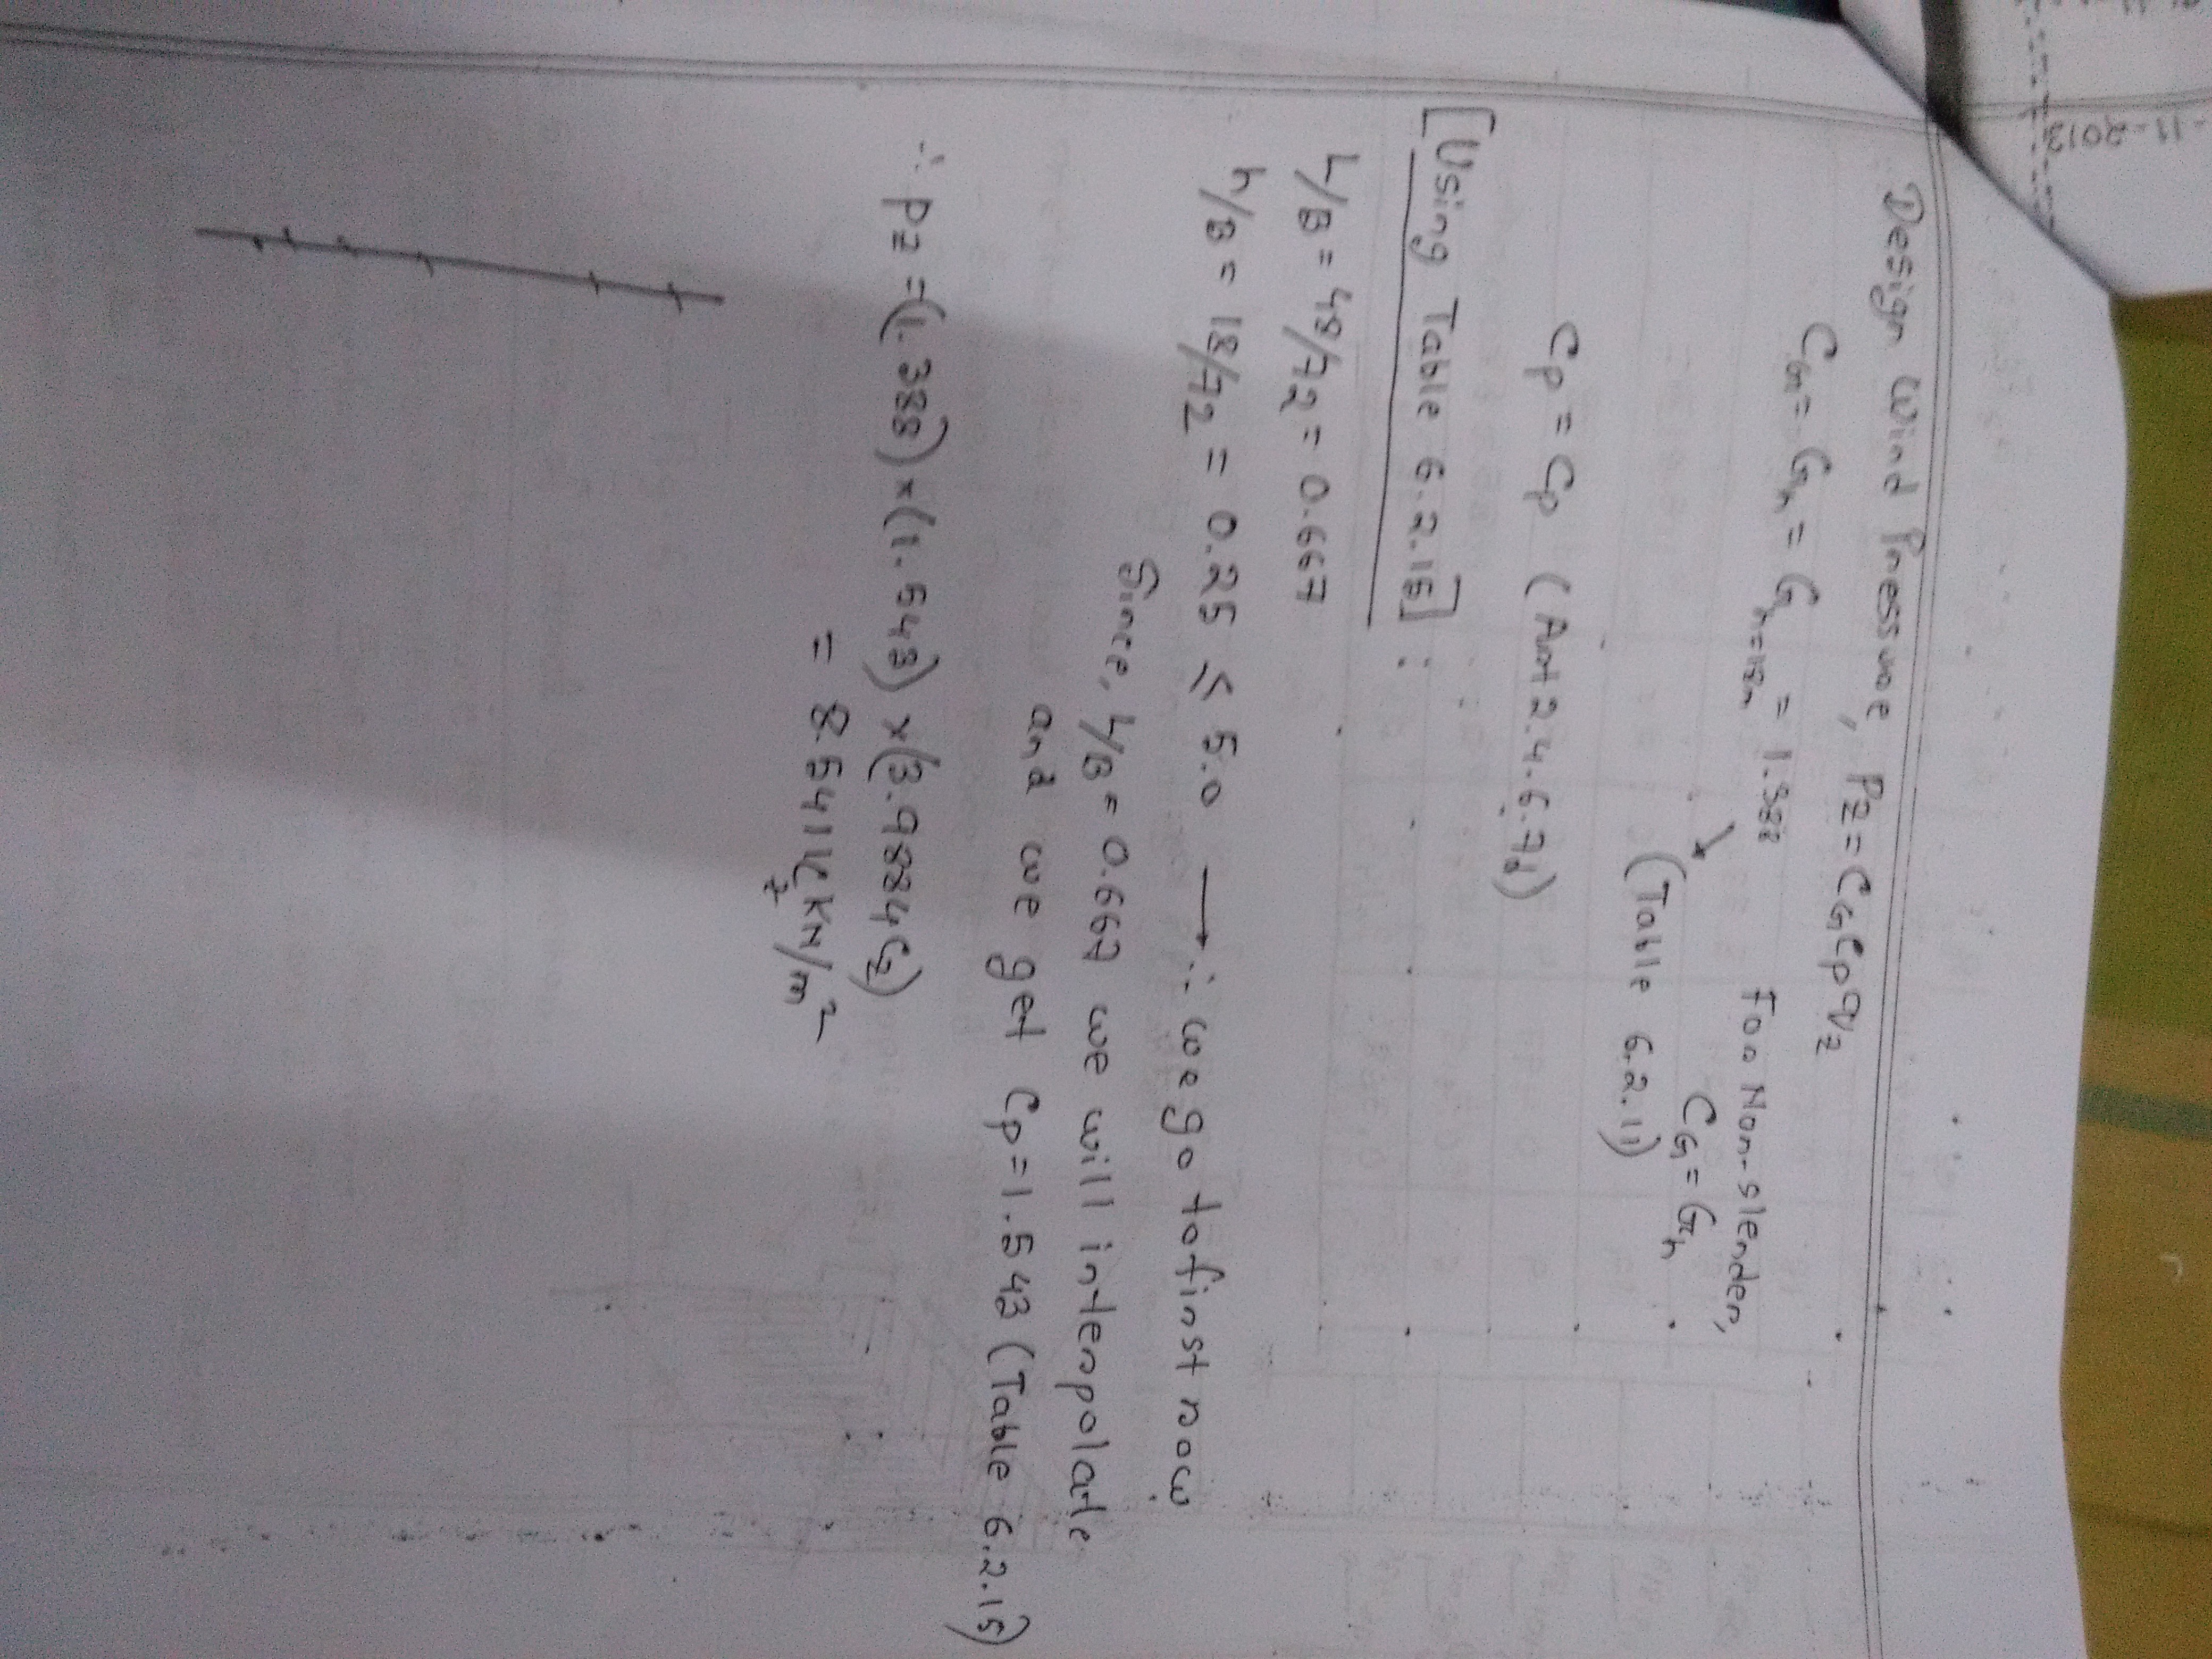 -11-2013
Design Wind Pressure, Pz = CG Cp qz
CG = Gh = Gh=18m = 1.388 For Non-slender,
CG = Gh
(Table 6.2.11)
Cp = Cp (Art 2.4.6.7)
[Using Table 6.2.15] :
L/B = 48/72 = 0.667
h/B = 18/72 = 0.25 ≤ 5.0 → ∴ we go to first row
Since, L/B = 0.667 we will interpolate
and we get Cp = 1.543 (Table 6.2.15)
∴ Pz = (1.388) × (1.543) × (3.9884 Cz)
= 8.541 Cz KN/m²